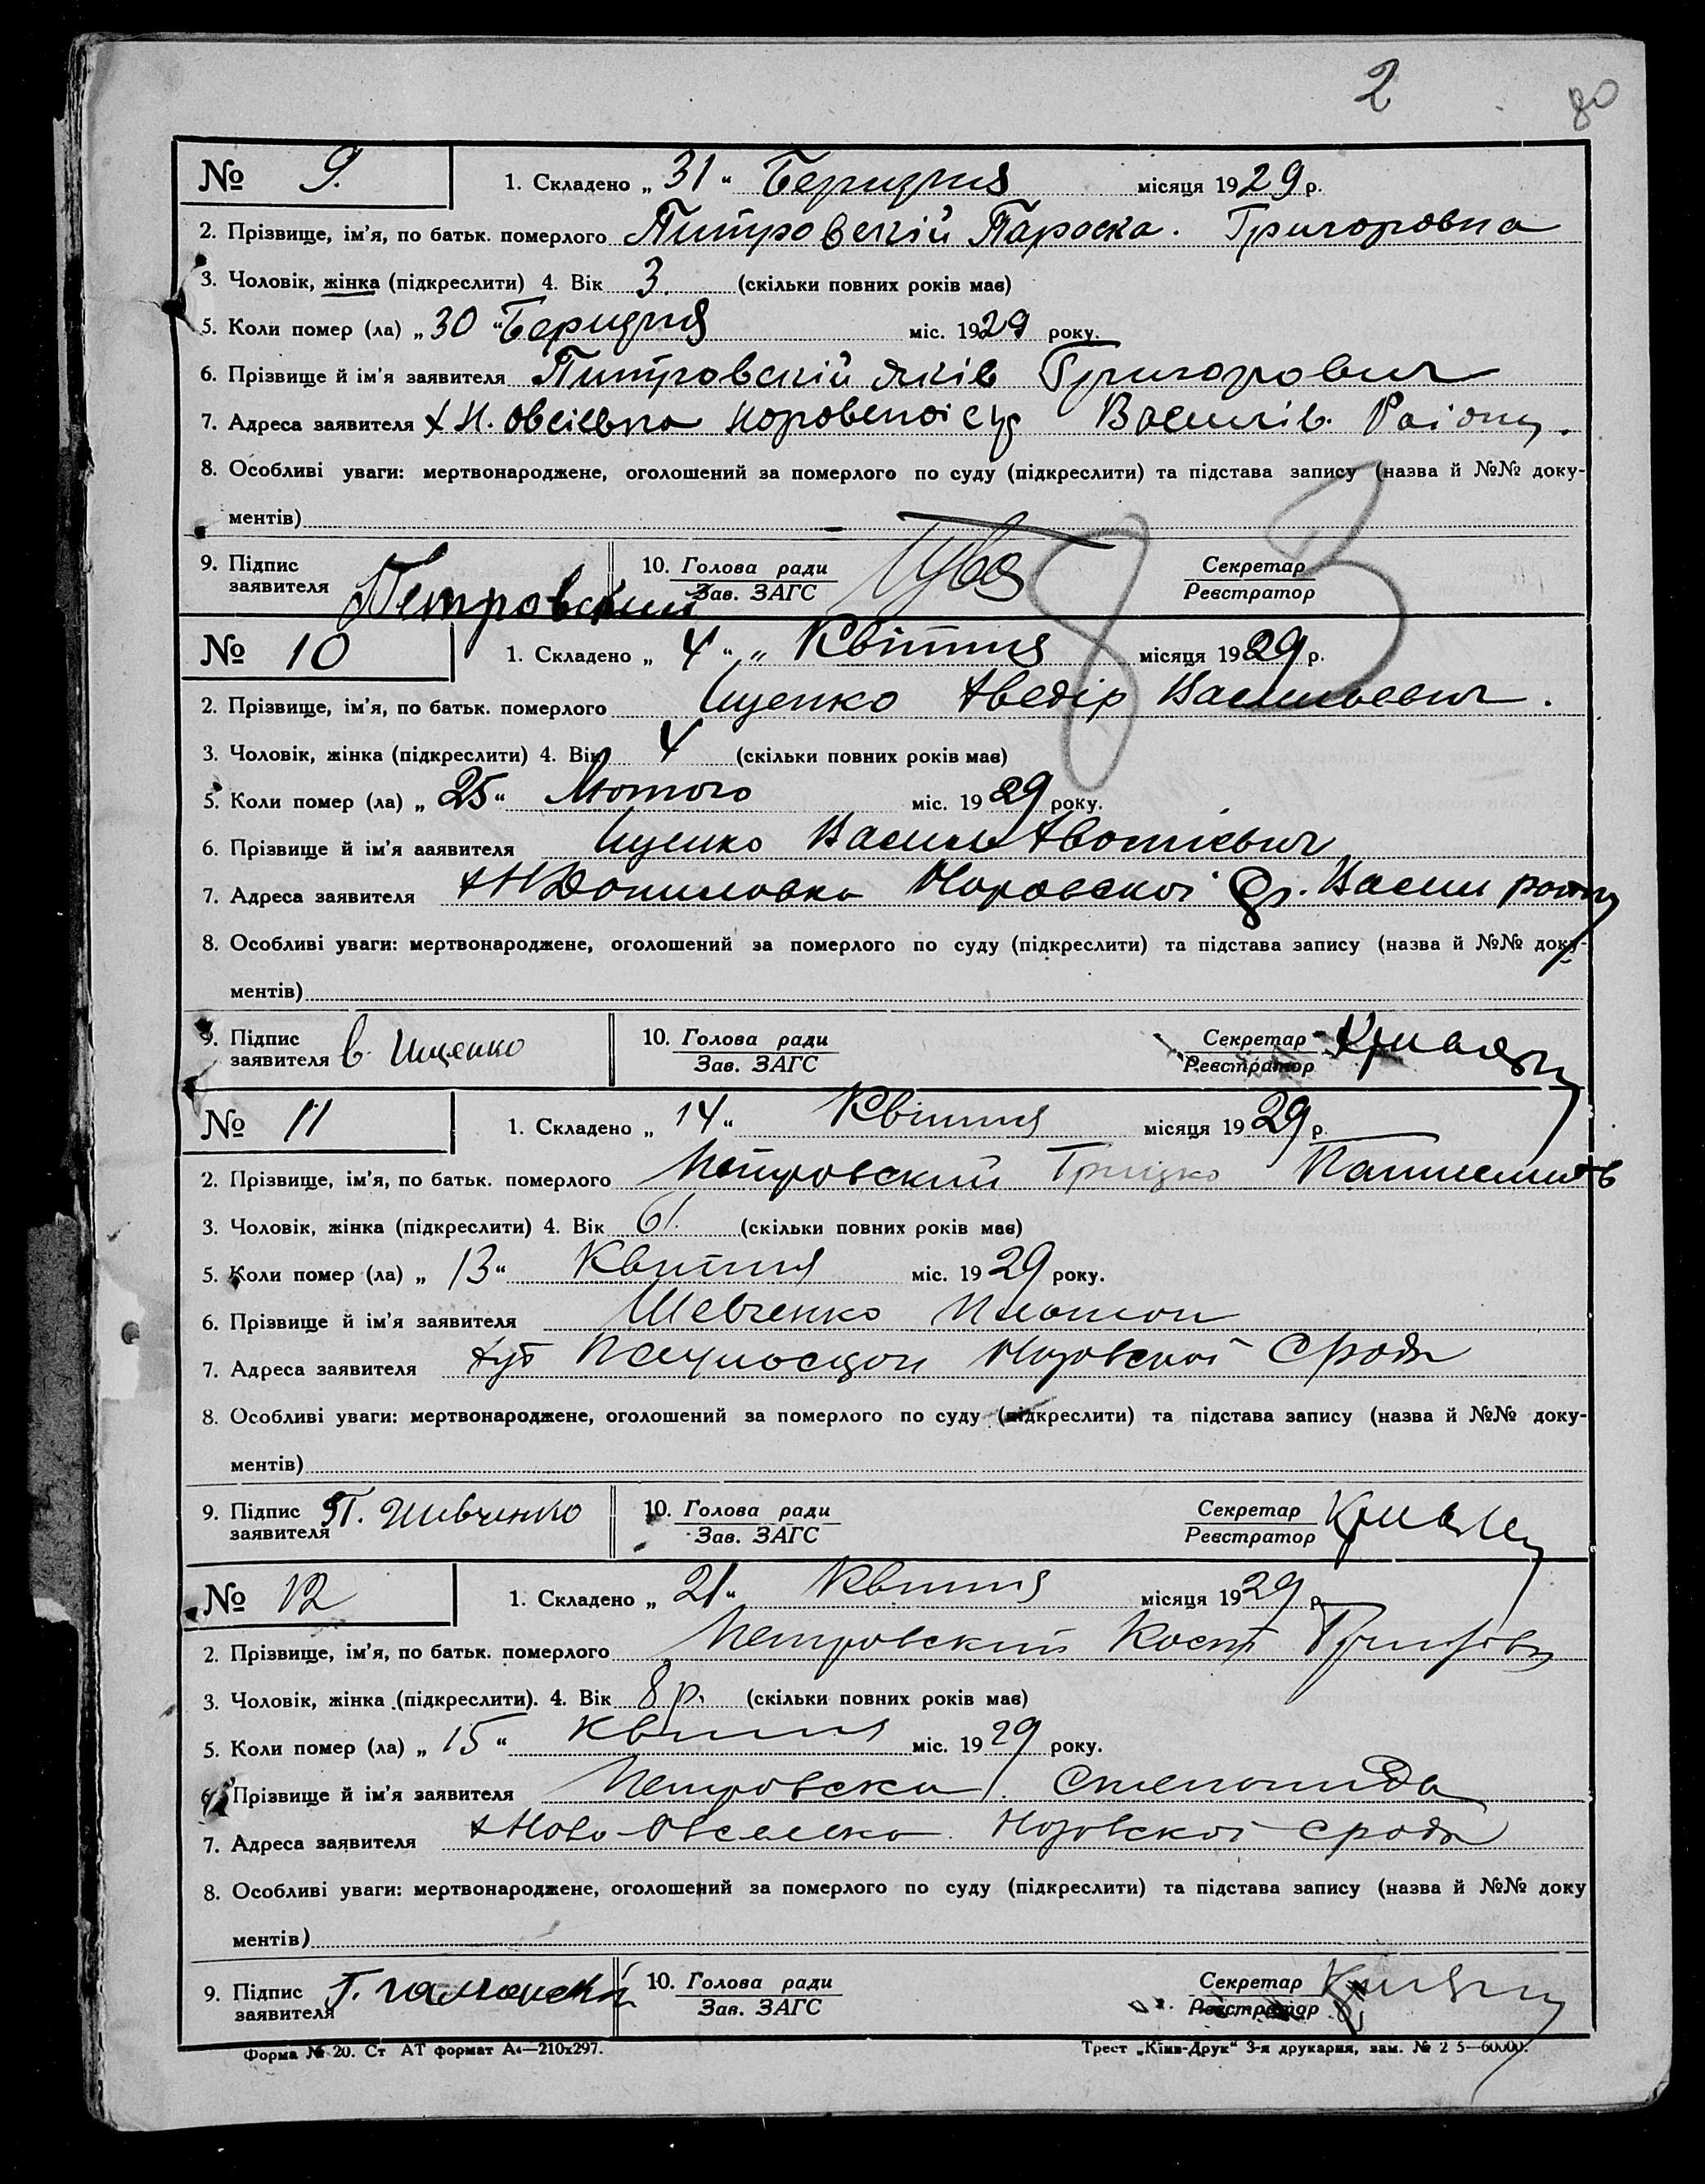 2
80
№ 9. 1. Складено „31“ Беризня місяця 1929 р.
2. Прізвище, ім'я, по батьк. померлого Питровскій Параска. Григоровна
3. Чоловік, жінка (підкреслити) 4. Вік 3. (скільки повних років має)
5. Коли помер (ла) „30“ Беризня міс. 1929 року.
6. Прізвище й ім'я заявителя Питровскій Яків Григорович
7. Адреса заявителя х Н. Овсіевка Району.
8. Особливі уваги: мертвонароджене, оголошений за померлого по суду (підкреслити) та підстава запису (назва й №№ доку-
ментів)
9. Підпис заявителя Петровский 10. Голова ради Зав. ЗАГС Секретар Реєстратор
83
№ 10 1. Складено „4“ „ Квітня місяця 1929 р.
2. Прізвище, ім'я, по батьк. померлого Ищенко Васильевич.
3. Чоловік, жінка (підкреслити) 4. Вік 4 (скільки повних років має)
5. Коли помер (ла) „25“ Лютого міс. 1929 року.
6. Прізвище й ім'я заявителя Ищенко Василь
7. Адреса заявителя
8. Особливі уваги: мертвонароджене, оголошений за померлого по суду (підкреслити) та підстава запису (назва й №№ доку-
ментів)
9. Підпис заявителя В. Ищенко 10. Голова ради Зав. ЗАГС Секретар Реєстратор
№ 11 1. Складено „14“ Квітня місяця 1929 р.
2. Прізвище, ім'я, по батьк. померлого Петровский Грицко
3. Чоловік, жінка (підкреслити) 4. Вік 61. (скільки повних років має)
5. Коли помер (ла) „13“ Квитня міс. 1929 року.
6. Прізвище й ім'я заявителя Шевченко Платон
7. Адреса заявителя хут
8. Особливі уваги: мертвонароджене, оголошений за померлого по суду (підкреслити) та підстава запису (назва й №№ доку-
ментів)
9. Підпис заявителя П. Шивченко 10. Голова ради Зав. ЗАГС Секретар Реєстратор
№ 12 1. Складено „21“ Квитня місяця 1929 р.
2. Прізвище, ім'я, по батьк. померлого Петровский Кост
3. Чоловік, жінка (підкреслити). 4. Вік 8 р. (скільки повних років має)
5. Коли помер (ла) „15“ Квитня міс. 1929 року.
6. Прізвище й ім'я заявителя Петровска Степанида
7. Адреса заявителя
8. Особливі уваги: мертвонароджене, оголошений за померлого по суду (підкреслити) та підстава запису (назва й №№ доку
ментів)
9. Підпис заявителя 10. Голова ради Зав. ЗАГС Секретар Реєстратор
Форма № 20. Ст АТ формат А4—210х297. Трест „Київ-Друк“ 3-я друкарня, зам. № 2 5—60000.